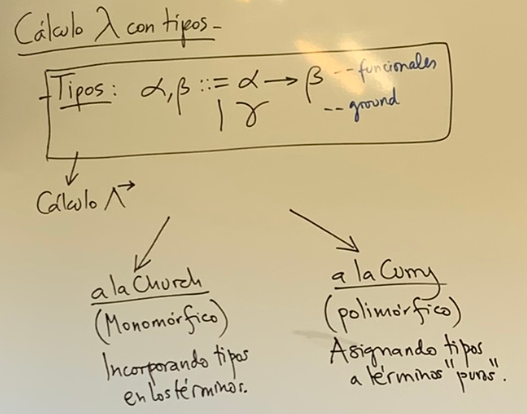 Cálculo λ con tipos -
- Tipos: α, β ::= α → β -- funcionales
| γ -- ground
Cálculo Λ→
a la Church
(Monomórfico)
Incorporando tipos
en los términos.
a la Curry
(polimórfico)
Asignando tipos
a términos "puros".